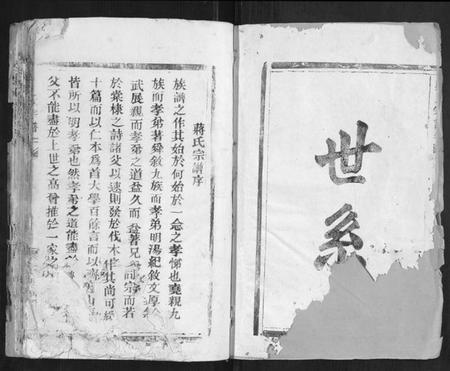 世系
蔣氏宗譜序
族譜之作其始於何始於一念之孝悌也堯親九
族而孝弟著舜敘九族而孝弟明湯紀敘文厚
武展親而孝弟之道益久而益著兄弟同宗而若
於棠棣之詩諸父以速則發於伐木作其尚可
十篇而以仁本爲首大學百餘言而以
皆所以明孝弟也然孝弟之道能盡於
父不能盡於上世之高曾推於一家之